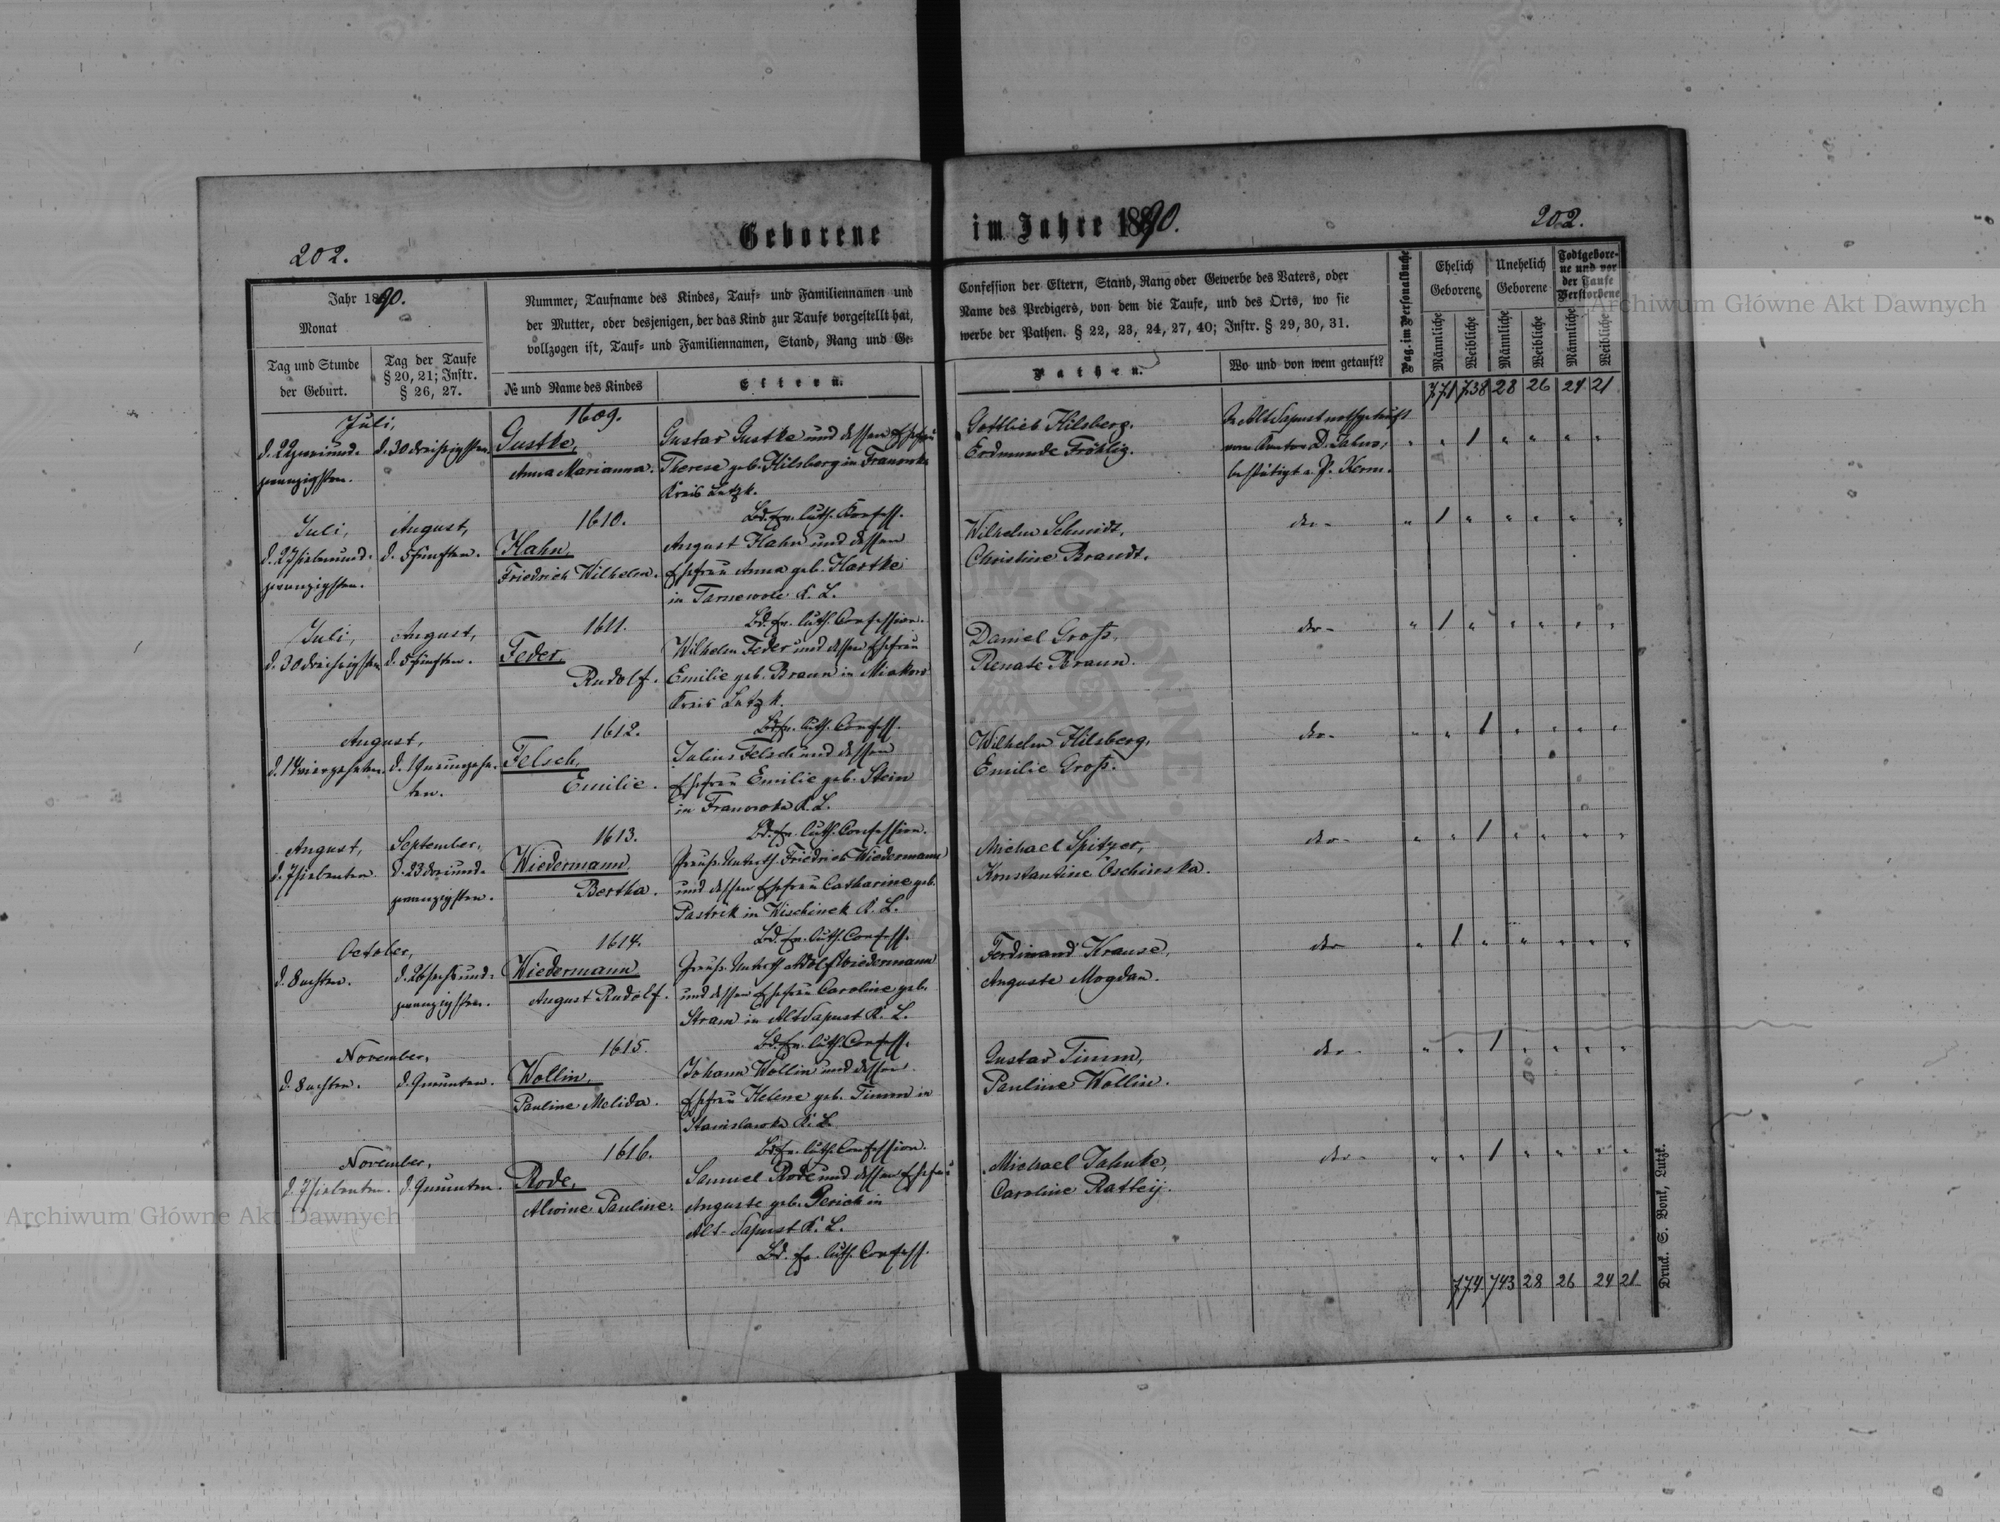 202.
Geborene
im Jahre 1890.
202.
Jahr 1890.
Monat
Tag und Stunde
der Geburt.
Tag der Taufe
§ 20, 21; Instr.
§ 26, 27.
Nummer, Taufname des Kindes, Tauf- und Familiennamen und
der Mutter, oder desjenigen, der das Kind zur Taufe vorgestellt hat,
vollzogen ist, Tauf- und Familiennamen, Stand, Rang und Ge-
№ und Name des Kindes
Eltern.
Confession der Eltern, Stand, Rang oder Gewerbe des Vaters, oder
Name des Predigers, von dem die Taufe, und des Orts, wo sie
werbe der Pathen. § 22, 23, 24, 27, 40; Instr. § 29, 30, 31.
Pathen.
Wo und von wem getauft?
Pag. im Personalbuche
Ehelich
Geborene
Unehelich
Geborene
Todtgebore-
ne und vor
der Taufe
Verstorbene
Männliche
Weibliche
Männliche
Weibliche
Männliche
Weibliche
771 738 28 26 24 21
Juli,
d. 22 zweiund-
zwanzigsten.
d. 30 dreißigsten
1609.
Gustke,
Anna Marianna.
Gustav Gustke und dessen Ehefrau
Therese geb. Hilsberg in Franowka
Kreis Lutzk.
Bd. ev. luth. Confess.
Gottlieb Hilsberg,
Erdmunde Fröhlig.
In Alt Sapust nothgetauft
vom Kantor D.
bestätigt v. P. Kerm.
" " 1 " " " "
Juli,
d. 27 siebenund-
zwanzigsten.
August,
d. 5 fünften.
1610.
Hahn,
Friedrich Wilhelm.
August Hahn und dessen
Ehefrau Anna geb. Hartke
in Tarnewole K. L.
Bd. ev. luth. Confession.
Wilhelm Schmidt,
Christine Brandt.
do-
" 1 " " " " "
Juli,
d. 30 dreißigsten
August,
d. 5 fünften.
1611.
Feder,
Rudolf.
Wilhelm Feder und dessen Ehefrau
Emilie geb. Braun in
Kreis Lutzk.
Bd. ev. luth. Confess.
Daniel Groß,
Renate Braun.
do-
" 1 " " " " "
August,
d. 14 vierzehnten.
d. 19 neunzehn-
ten.
1612.
Felsch,
Emilie.
Julius Felsch und dessen
Ehefrau Emilie geb. Stein
in Franowka K. L.
Bd. ev. luth. Confession.
Wilhelm Hilsberg,
Emilie Groß.
do-
" " 1 " " " "
August,
d. 7 siebenten
September,
d. 23 dreiund-
zwanzigsten.
1613.
Wiedermann
Bertha.
Preuß. Unterth. Friedrich Wiedermann
und dessen Ehefrau Catharine geb.
Pastrik in Wischinek K. L.
Bd. ev. luth. Confess.
Michael Spitzer,
Konstantine Oschinska.
do-
" " 1 " " " "
October,
d. 8 achten.
d. 26 sechsund-
zwanzigsten.
1614.
Wiedermann
August Rudolf.
Preuß. Unterth. Adolf Wiedermann
und dessen Ehefrau Caroline geb.
Stram in Alt Sapust K. L.
Bd. ev. luth. Confess.
Ferdinand Krause,
Auguste Mogdan.
do-
" 1 " " " " "
November,
d. 8 achten.
d. 9 neunten.
1615.
Wollin,
Pauline Melida.
Johann Wollin und dessen
Ehefrau Helene geb. Timm in
Stanislawka K. L.
Bd. ev. luth. Confession.
Gustav Timm,
Pauline Wollin.
do-
" " 1 " " " "
November,
d. 7 siebenten.
d. 9 neunten.
1616.
Rode,
Alwine Pauline.
Samuel Rode und dessen Ehefrau
Auguste geb. Gerich in
Alt-Sapust K. L.
Bd. ev. luth. Confess.
Michael Jahnke,
Caroline Ratteij.
do-
" " 1 " " " "
774 743 28 26 24 21
Druck. S. Bonk, Lutzk.
Archiwum Główne Akt Dawnych
Archiwum Główne Akt Dawnych